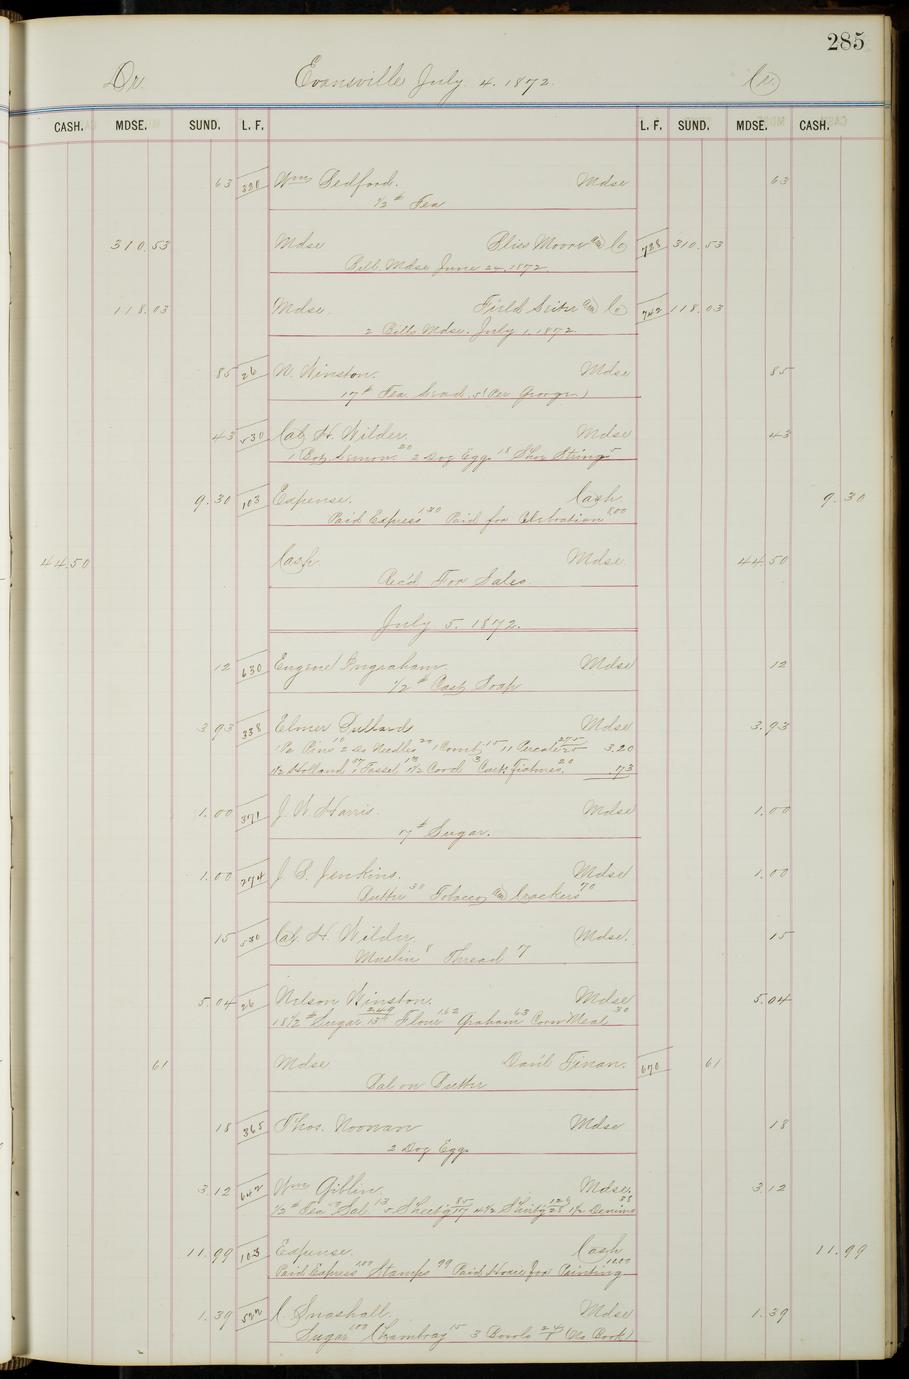 285
Dr. Evansville July 4. 1872. Cr.
CASH. MDSE. SUND. L. F. L. F. SUND. MDSE. CASH.
63 320 Wm Bedford. Mdse 63
1/2 # Tea
310.53 Mdse Bliss Moore & Co 728 310.53
Bill Mdse June 24, 1872
118.03 Mdse. Field Leiter & Co 742 118.03
2 Bills Mdse. July 1, 1872
85 26 N. Winston. Mdse 85
17 # Tea Lead .5¢ Per George)
43 530 Cal H. Wilder. Mdse 43
1 Lemon 20 2 Doz Eggs 18 Shoe Strings 5
9.30 103 Expense. Cash 9.30
Paid Express 1.30 Paid for Celebration 8.00
44.50 Cash Mdse 44.50
Rec'd For Sales.
July 5. 1872.
12 630 Eugene Ingraham. Mdse 12
1/2 # Cast Soap
3.93 338 Elmer Bullard Mdse 3.93
1 Pa Pins 10 2 Do Needles 20 1 Comb 15 11 Percale 275/25 3.20
1 1/2 Holland 1 Tassel 1 1/2 Cord 3 Curt. Fixtures. 20 .73
1.00 371 J. W. Harris. Mdse 1.00
7 # Sugar.
1.00 274 J. S. Jenkins. Mdse 1.00
Butter 30 Tobacco & Crackers 70
15 530 Cal H. Wilder. Mdse. 15
Muslin 8 Thread 7
5.04 26 Nelson Winston. Mdse 5.04
18 1/2 # Sugar 249 Flour 162 Graham 63 Corn Meal 30
61 Mdse Dan'l Finan. 670 61
Bal on Butter
18 365 Thos. Noonan Mdse 18
2 Doz Eggs
3.12 642 Wm Giblin. Mdse. 3.12
1/2 # Tea Sal 13 5 Sheet'g 85/17 4 1/2 Shirt'g 126/28 1 1/2 Denims 38
11.99 103 Expense. Cash 11.99
Paid Express 1.00 Stamps 99 Paid Howe for Painting 10.00
1.39 522 C. Snashall. Mdse 1.39
Sugar 1.00 Chambray 15 3 Bowls 24/8 (Do Cook)